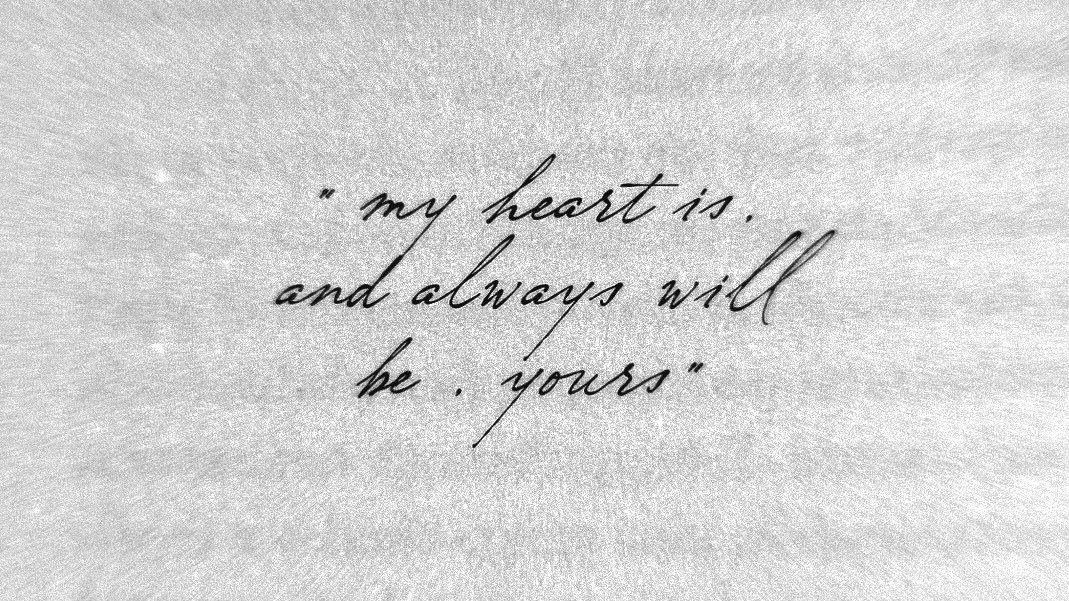 " my heart is.
and always will
be . yours"